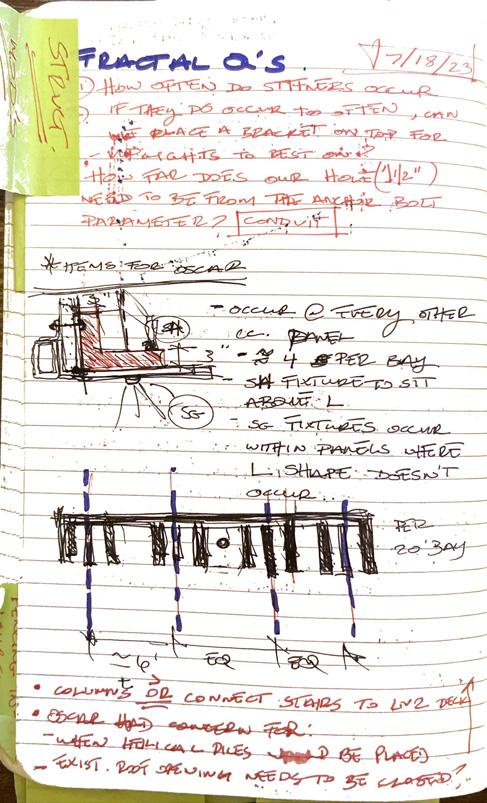 STRUCT.
FRACTAL Q'S.
7/18/23
1) HOW OFTEN DO STIFFNERS OCCUR
IF THEY DO OCCUR TOO OFTEN, CAN
WE PLACE A BRACKET ON TOP FOR
LIGHTS TO REST ON?
HOW FAR DOES OUR HOLE (1 1/2")
NEED TO BE FROM THE ANCHOR BOLT
PARAMETER? CONDUIT
* ITEMS FOR OSCAR
- OCCUR @ EVERY OTHER
CC. PANEL
- ≈ 4 PER BAY
- SA FIXTURE TO SIT
ABOVE L
- SG FIXTURES OCCUR
WITHIN PANELS WHERE
L. SHAPE DOESN'T
OCCUR..
SA
3"
SG
PER
20' BAY
≈ 6'
EQ
EQ
• COLUMNS OR CONNECT STAIRS TO LVL2 DECK
• OSCAR HAD CONCERN FOR:
- WHEN HELICAL PILES WOULD BE PLACED
- EXIST. ROOF OPENING NEEDS TO BE CLOSED?